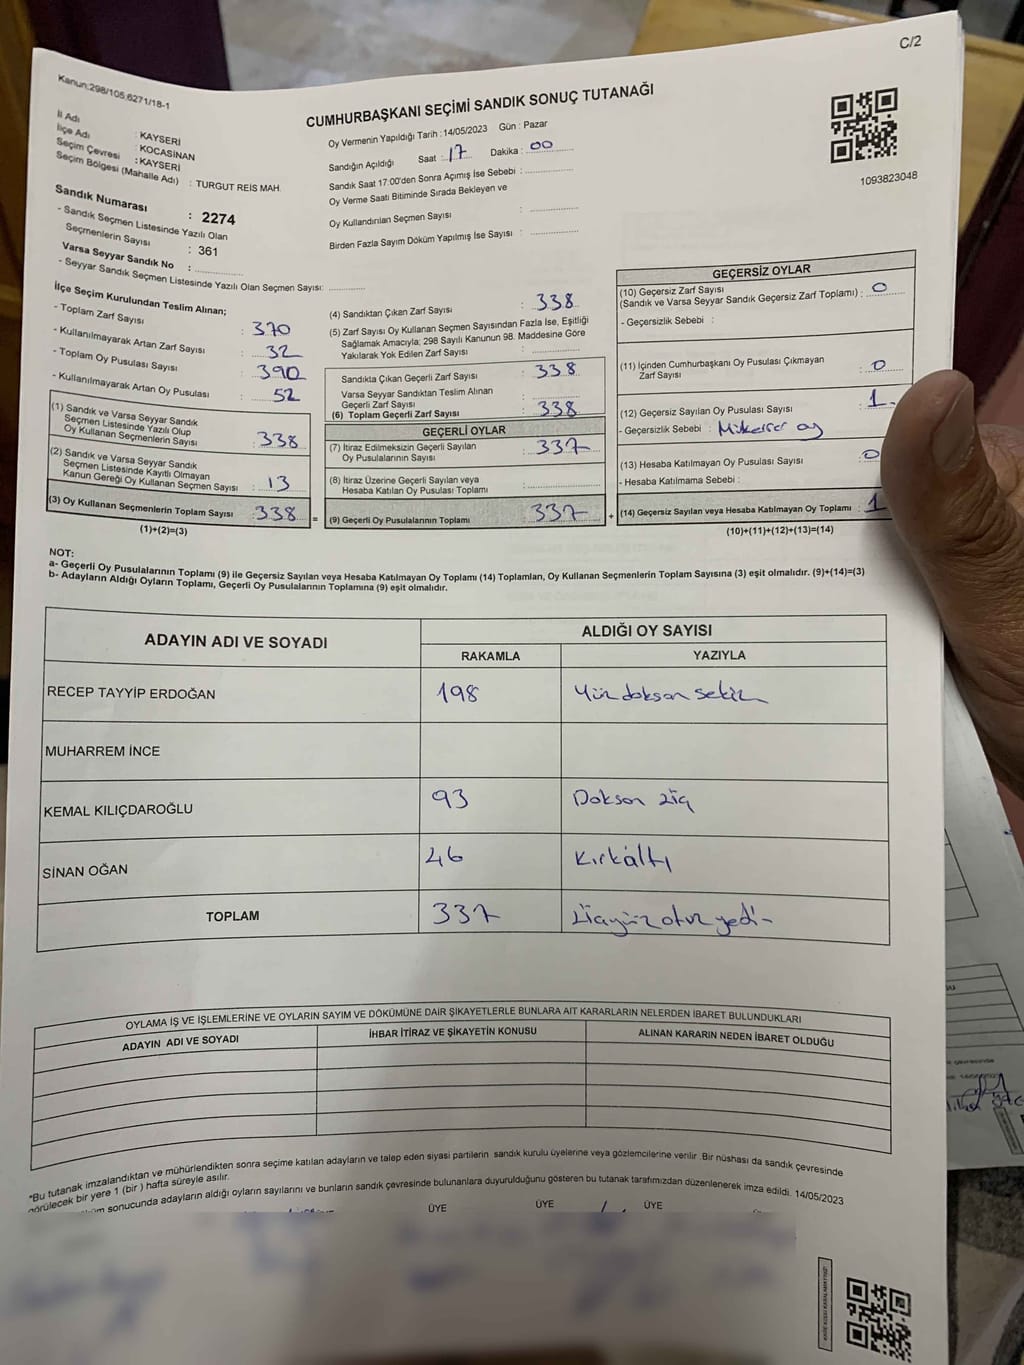 C/2
Kanun:298/105,6271/18-1
CUMHURBAŞKANI SEÇİMİ SANDIK SONUÇ TUTANAĞI
İl Adı : KAYSERİ
İlçe Adı : KOCASİNAN
Seçim Çevresi : KAYSERİ
Seçim Bölgesi (Mahalle Adı) : TURGUT REİS MAH.
Sandık Numarası : 2274
- Sandık Seçmen Listesinde Yazılı Olan
Seçmenlerin Sayısı : 361
Varsa Seyyar Sandık No :
- Seyyar Sandık Seçmen Listesinde Yazılı Olan Seçmen Sayısı:
Oy Vermenin Yapıldığı Tarih :14/05/2023 Gün : Pazar
Sandığın Açıldığı Saat : 17 Dakika : 00
Sandık Saat 17:00'den Sonra Açımış İse Sebebi :
Oy Verme Saati Bitiminde Sırada Bekleyen ve
Oy Kullandırılan Seçmen Sayısı :
Birden Fazla Sayım Döküm Yapılmış İse Sayısı :
1093823048
İlçe Seçim Kurulundan Teslim Alınan;
- Toplam Zarf Sayısı : 370
- Kullanılmayarak Artan Zarf Sayısı : 32
- Toplam Oy Pusulası Sayısı : 390
- Kullanılmayarak Artan Oy Pusulası : 52
(1) Sandık ve Varsa Seyyar Sandık
Seçmen Listesinde Yazılı Olup
Oy Kullanan Seçmenlerin Sayısı : 338
(2) Sandık ve Varsa Seyyar Sandık
Seçmen Listesinde Kayıtlı Olmayan
Kanun Gereği Oy Kullanan Seçmen Sayısı : 13
(3) Oy Kullanan Seçmenlerin Toplam Sayısı : 338
(1)+(2)=(3)
(4) Sandıktan Çıkan Zarf Sayısı : 338
(5) Zarf Sayısı Oy Kullanan Seçmen Sayısından Fazla İse, Eşitliği
Sağlamak Amacıyla; 298 Sayılı Kanunun 98. Maddesine Göre
Yakılarak Yok Edilen Zarf Sayısı :
Sandıkta Çıkan Geçerli Zarf Sayısı : 338
Varsa Seyyar Sandıktan Teslim Alınan
Geçerli Zarf Sayısı :
(6) Toplam Geçerli Zarf Sayısı : 338
GEÇERLİ OYLAR
(7) İtiraz Edilmeksizin Geçerli Sayılan
Oy Pusulalarının Sayısı : 337
(8) İtiraz Üzerine Geçerli Sayılan veya
Hesaba Katılan Oy Pusulası Toplamı :
= (9) Geçerli Oy Pusulalarının Toplamı : 337 +
GEÇERSİZ OYLAR
(10) Geçersiz Zarf Sayısı
(Sandık ve Varsa Seyyar Sandık Geçersiz Zarf Toplamı) : 0
- Geçersizlik Sebebi :
(11) İçinden Cumhurbaşkanı Oy Pusulası Çıkmayan
Zarf Sayısı : 0
(12) Geçersiz Sayılan Oy Pusulası Sayısı : 1
- Geçersizlik Sebebi : Mükerrer oy
(13) Hesaba Katılmayan Oy Pusulası Sayısı : 0
- Hesaba Katılmama Sebebi :
(14) Geçersiz Sayılan veya Hesaba Katılmayan Oy Toplamı : 1
(10)+(11)+(12)+(13)=(14)
NOT:
a- Geçerli Oy Pusulalarının Toplamı (9) ile Geçersiz Sayılan veya Hesaba Katılmayan Oy Toplamı (14) Toplamları, Oy Kullanan Seçmenlerin Toplam Sayısına (3) eşit olmalıdır. (9)+(14)=(3)
b- Adayların Aldığı Oyların Toplamı, Geçerli Oy Pusulalarının Toplamına (9) eşit olmalıdır.
ADAYIN ADI VE SOYADI ALDIĞI OY SAYISI
RAKAMLA YAZIYLA
RECEP TAYYİP ERDOĞAN 198 Yüz doksan sekiz
MUHARREM İNCE
KEMAL KILIÇDAROĞLU 93 Doksan üç
SİNAN OĞAN 46 Kırkaltı
TOPLAM 337 Üçyüz otuz yedi
OYLAMA İŞ VE İŞLEMLERİNE VE OYLARIN SAYIM VE DÖKÜMÜNE DAİR ŞİKAYETLERLE BUNLARA AİT KARARLARIN NELERDEN İBARET BULUNDUKLARI
ADAYIN ADI VE SOYADI İHBAR İTİRAZ VE ŞİKAYETİN KONUSU ALINAN KARARIN NEDEN İBARET OLDUĞU
*Bu tutanak imzalandıktan ve mühürlendikten sonra seçime katılan adayların ve talep eden siyasi partilerin sandık kurulu üyelerine veya gözlemcilerine verilir .Bir nüshası da sandık çevresinde
görülecek bir yere 1 (bir ) hafta süreyle asılır.
sonucunda adayların aldığı oyların sayılarını ve bunların sandık çevresinde bulunanlara duyurulduğunu gösteren bu tutanak tarafımızdan düzenlenerek imza edildi. 14/05/2023
ÜYE ÜYE ÜYE